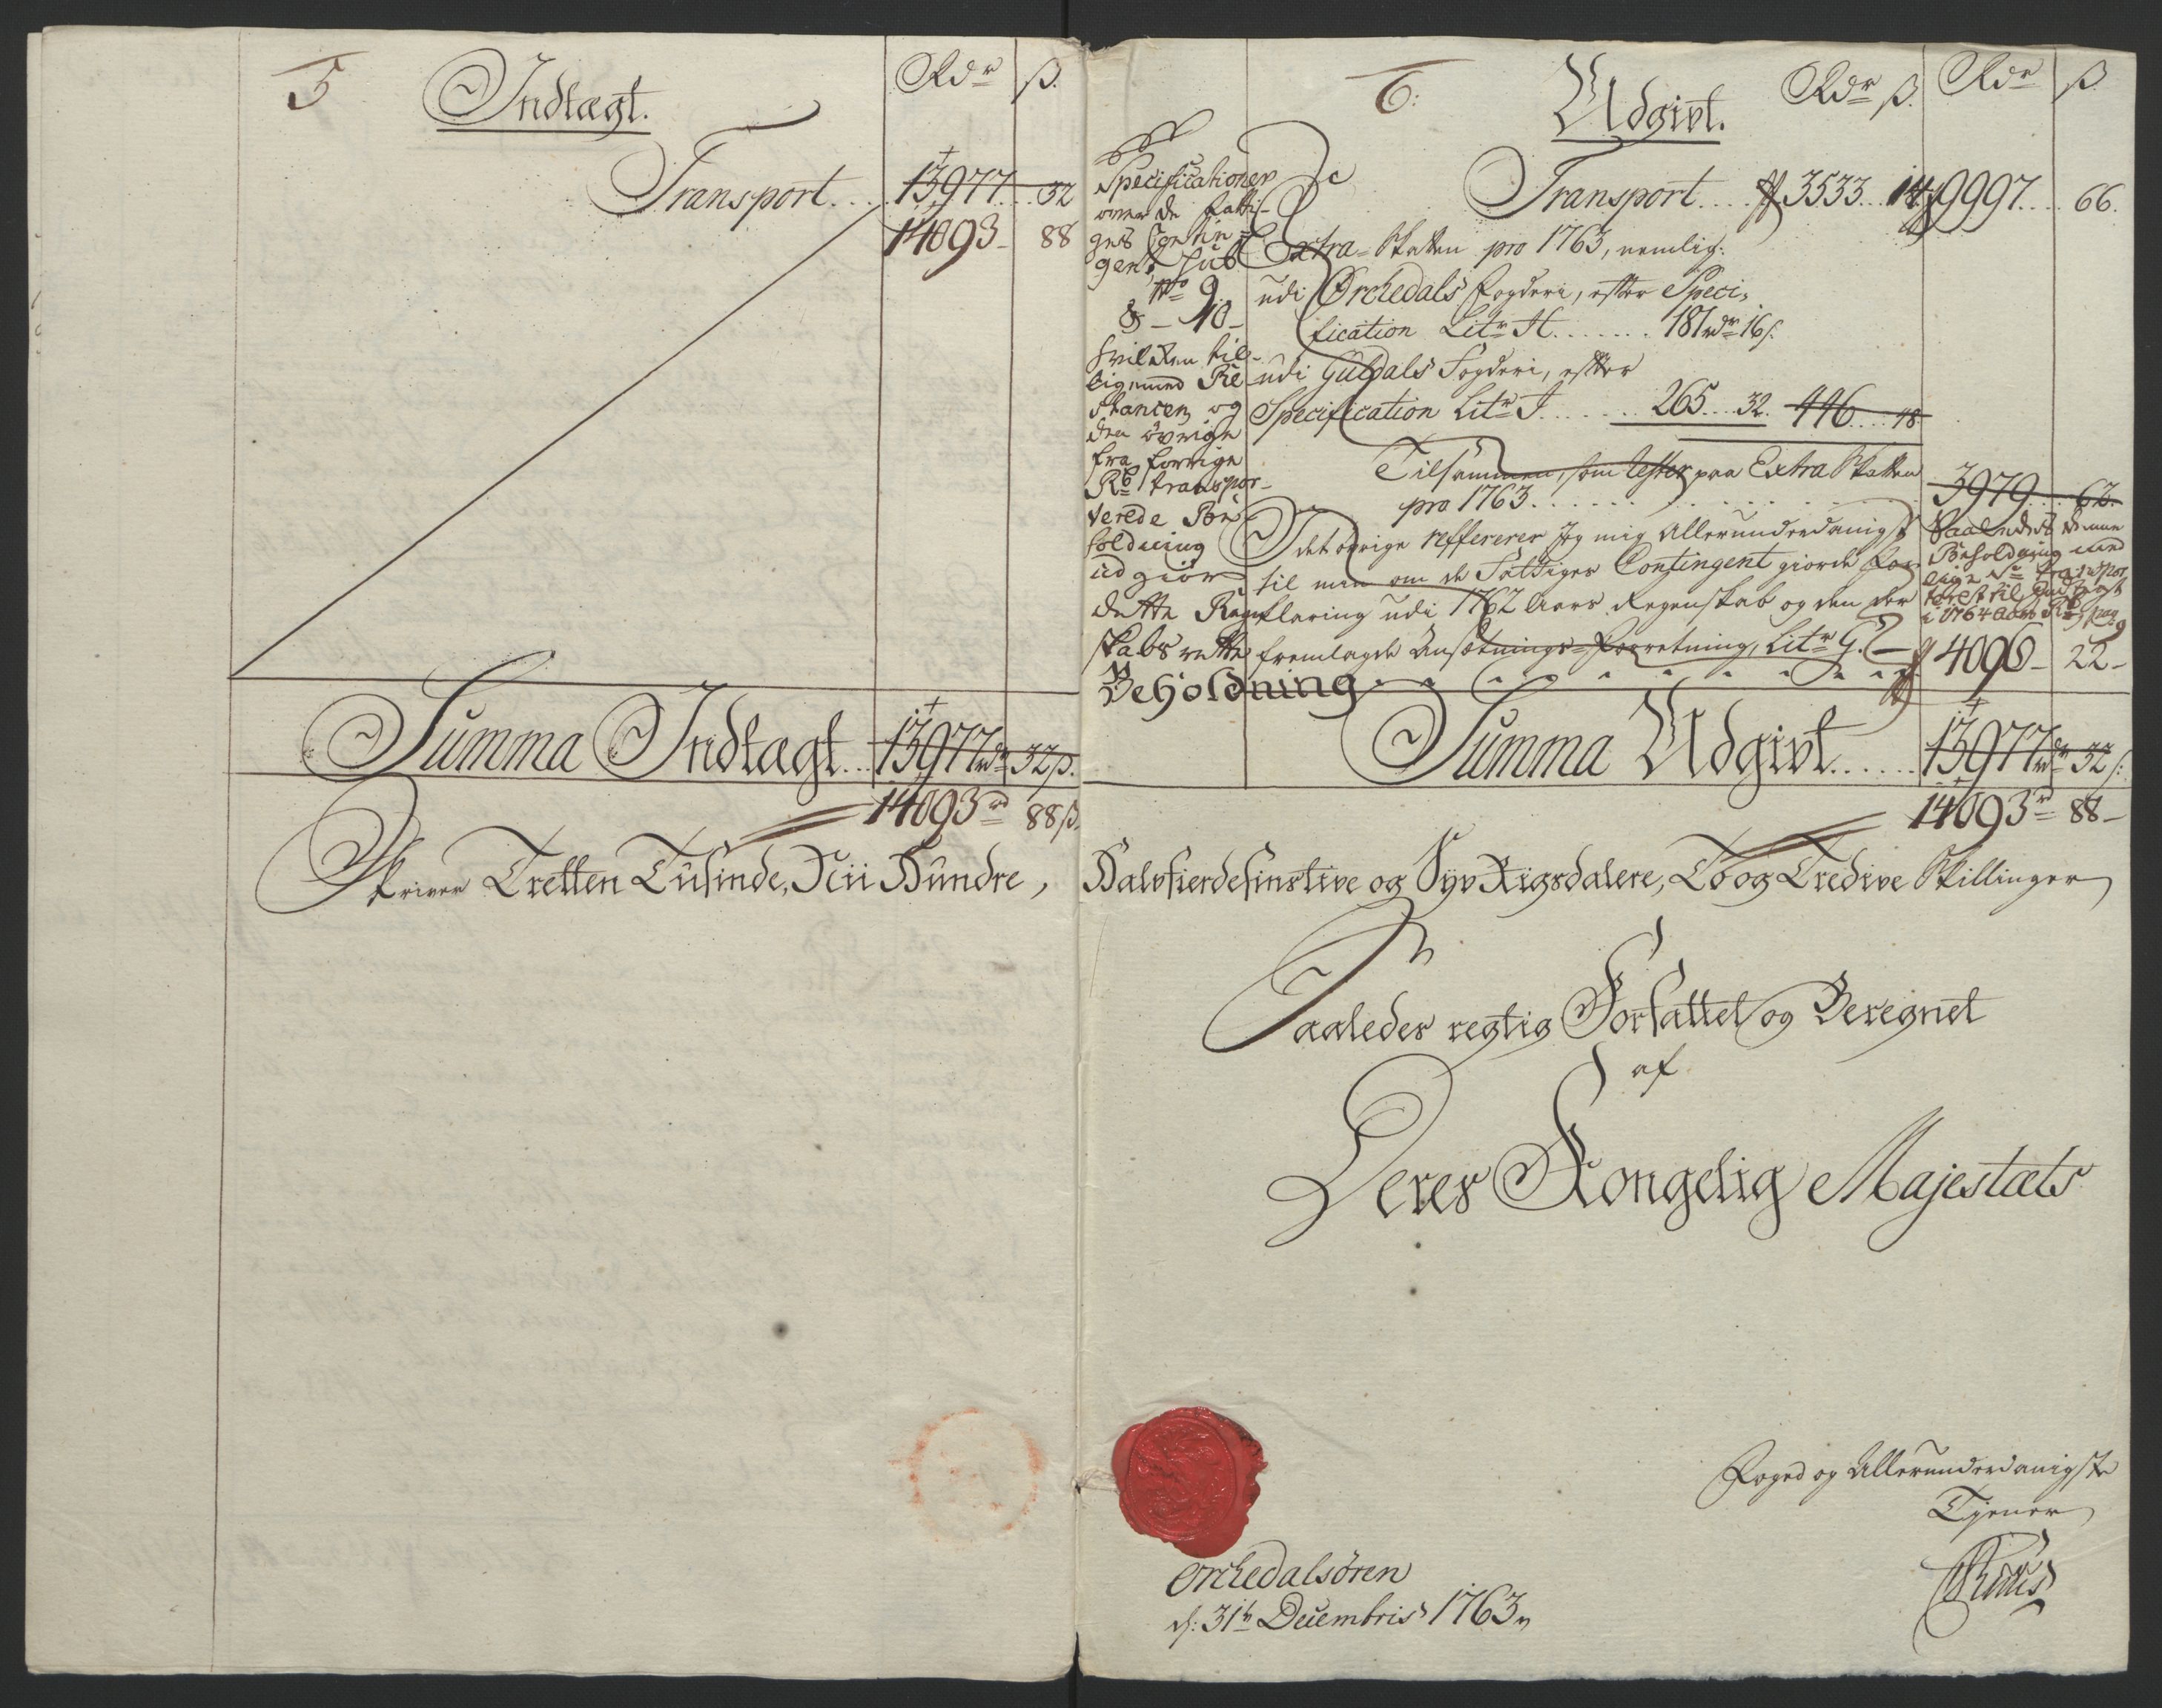 5 Indtægt. Rdr ß.
Transport.... 13977... 32
14093- 88
Summa Indtægt... 13977rdr 32ß.
14093rd 88ß.
Skriver Tretten Tusinde, Nii Hundre,
6: Udgivt. Rdr ß. Rdr ß
Specificationer
over de Fatti-
ges Contin-
gent, sub
No 9
& - 10-
hvilken til-
ligemed Re-
stancen og
den övrige
fra forrige
transpor-
terede Be-
holdning
udgiör
dette Regn-
skabs rette
Beholdning
Transport.... 3533... 14 9997.... 66.
Extra-Skatten pro 1763, nemlig:
udi Orchedals Fogderi, efter Speci-
fication Litr H....... 181rdr 16ß.
udi Guldals Fogderi, efter
Specification Litr I....... 265... 32. 446.... 48
Tilsammen, som rester paa Extra Skatten
pro 1763........... 3979... 62.
I det övrige reffererer jeg mig Allerunderdanigst
til min om de Fattiges Contingent giorde For-
klaring udi 1762 Aars Regenskab og den der
fremlagde Ansætnings-Forretning, Litr G.
Saaledes denne
Beholdning med
til Indtægt
i 1764 Aars pag
4096- 22-
Summa Udgivt...... 13977rdr 32ß:
14093rd 88-
Halvfierdesinstive og Syv Rigsdalere, To og Tredive Skillinger
Saaledes regtig Forfattet og Beregnet
af
Deres Kongelig Majestæts
Foged og Allerunderdanigste
Tjener
Orchedalsören
d: 31te Decembris 1763